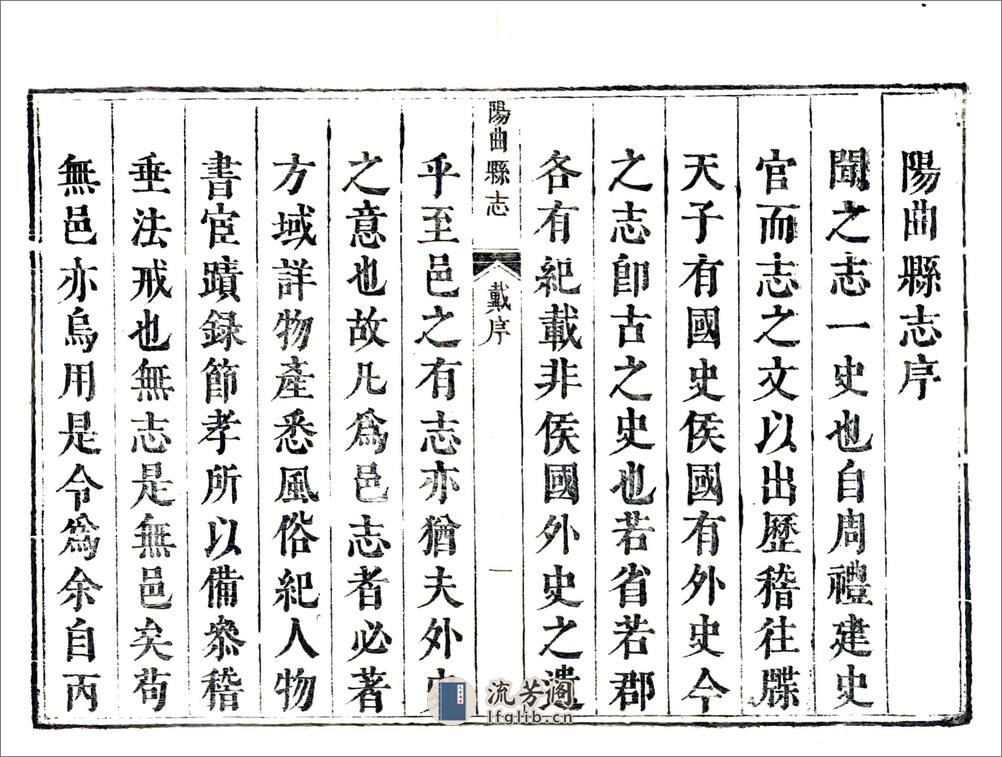 陽曲縣志序
聞之志一史也自周禮建史
官而志之文以出歷稽往牒
天子有國史侯國有外史今
之志卽古之史也若省若郡
各有紀載非侯國外史之遺
陽曲縣志 戴序 一
乎至邑之有志亦猶夫外史
之意也故凡爲邑志者必著
方域詳物產悉風俗紀人物
書宦蹟録節孝所以備叅稽
垂法戒也無志是無邑矣茍
無邑亦烏用是令爲余自丙
流芳阁
lfglib.cn